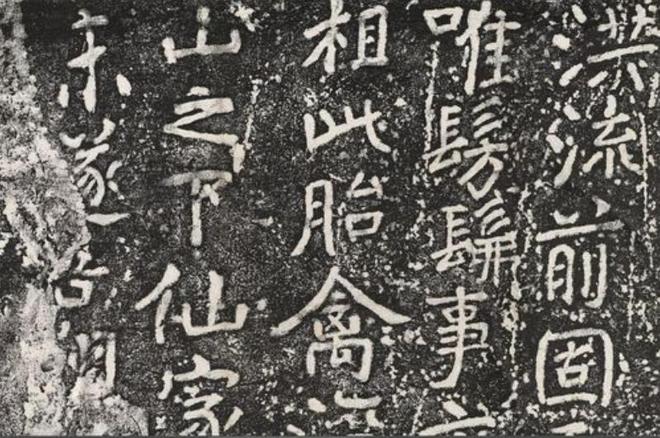 洪流前固
唯髣髴事
相此胎禽
山之下仙家
未遂吾翔